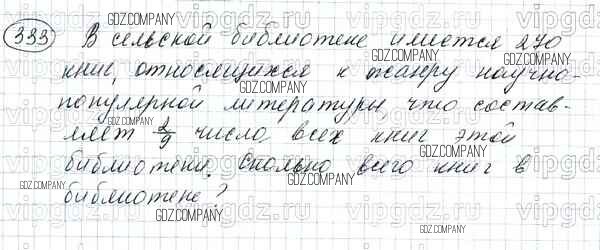 333 В сельской библиотеке имеется 270
книг, относящихся к жанру научно-
популярной литературы, что состав-
ляет 2/9 числа всех книг этой
библиотеки. Сколько всего книг в
библиотеке?
GDZ.COMPANY
vipgdz.ru